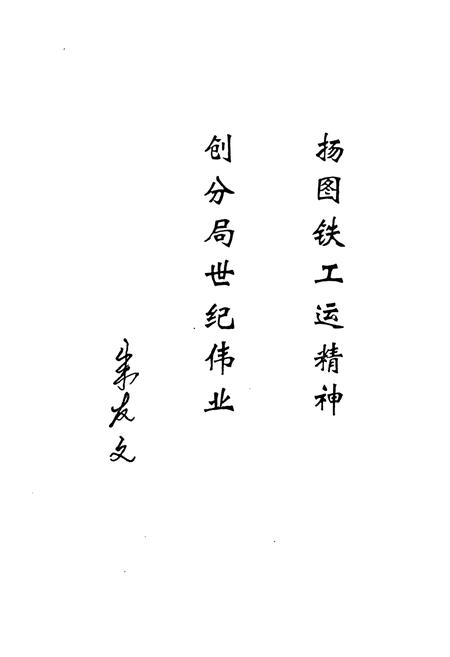 扬图铁工运精神
创分局世纪伟业
朱友文